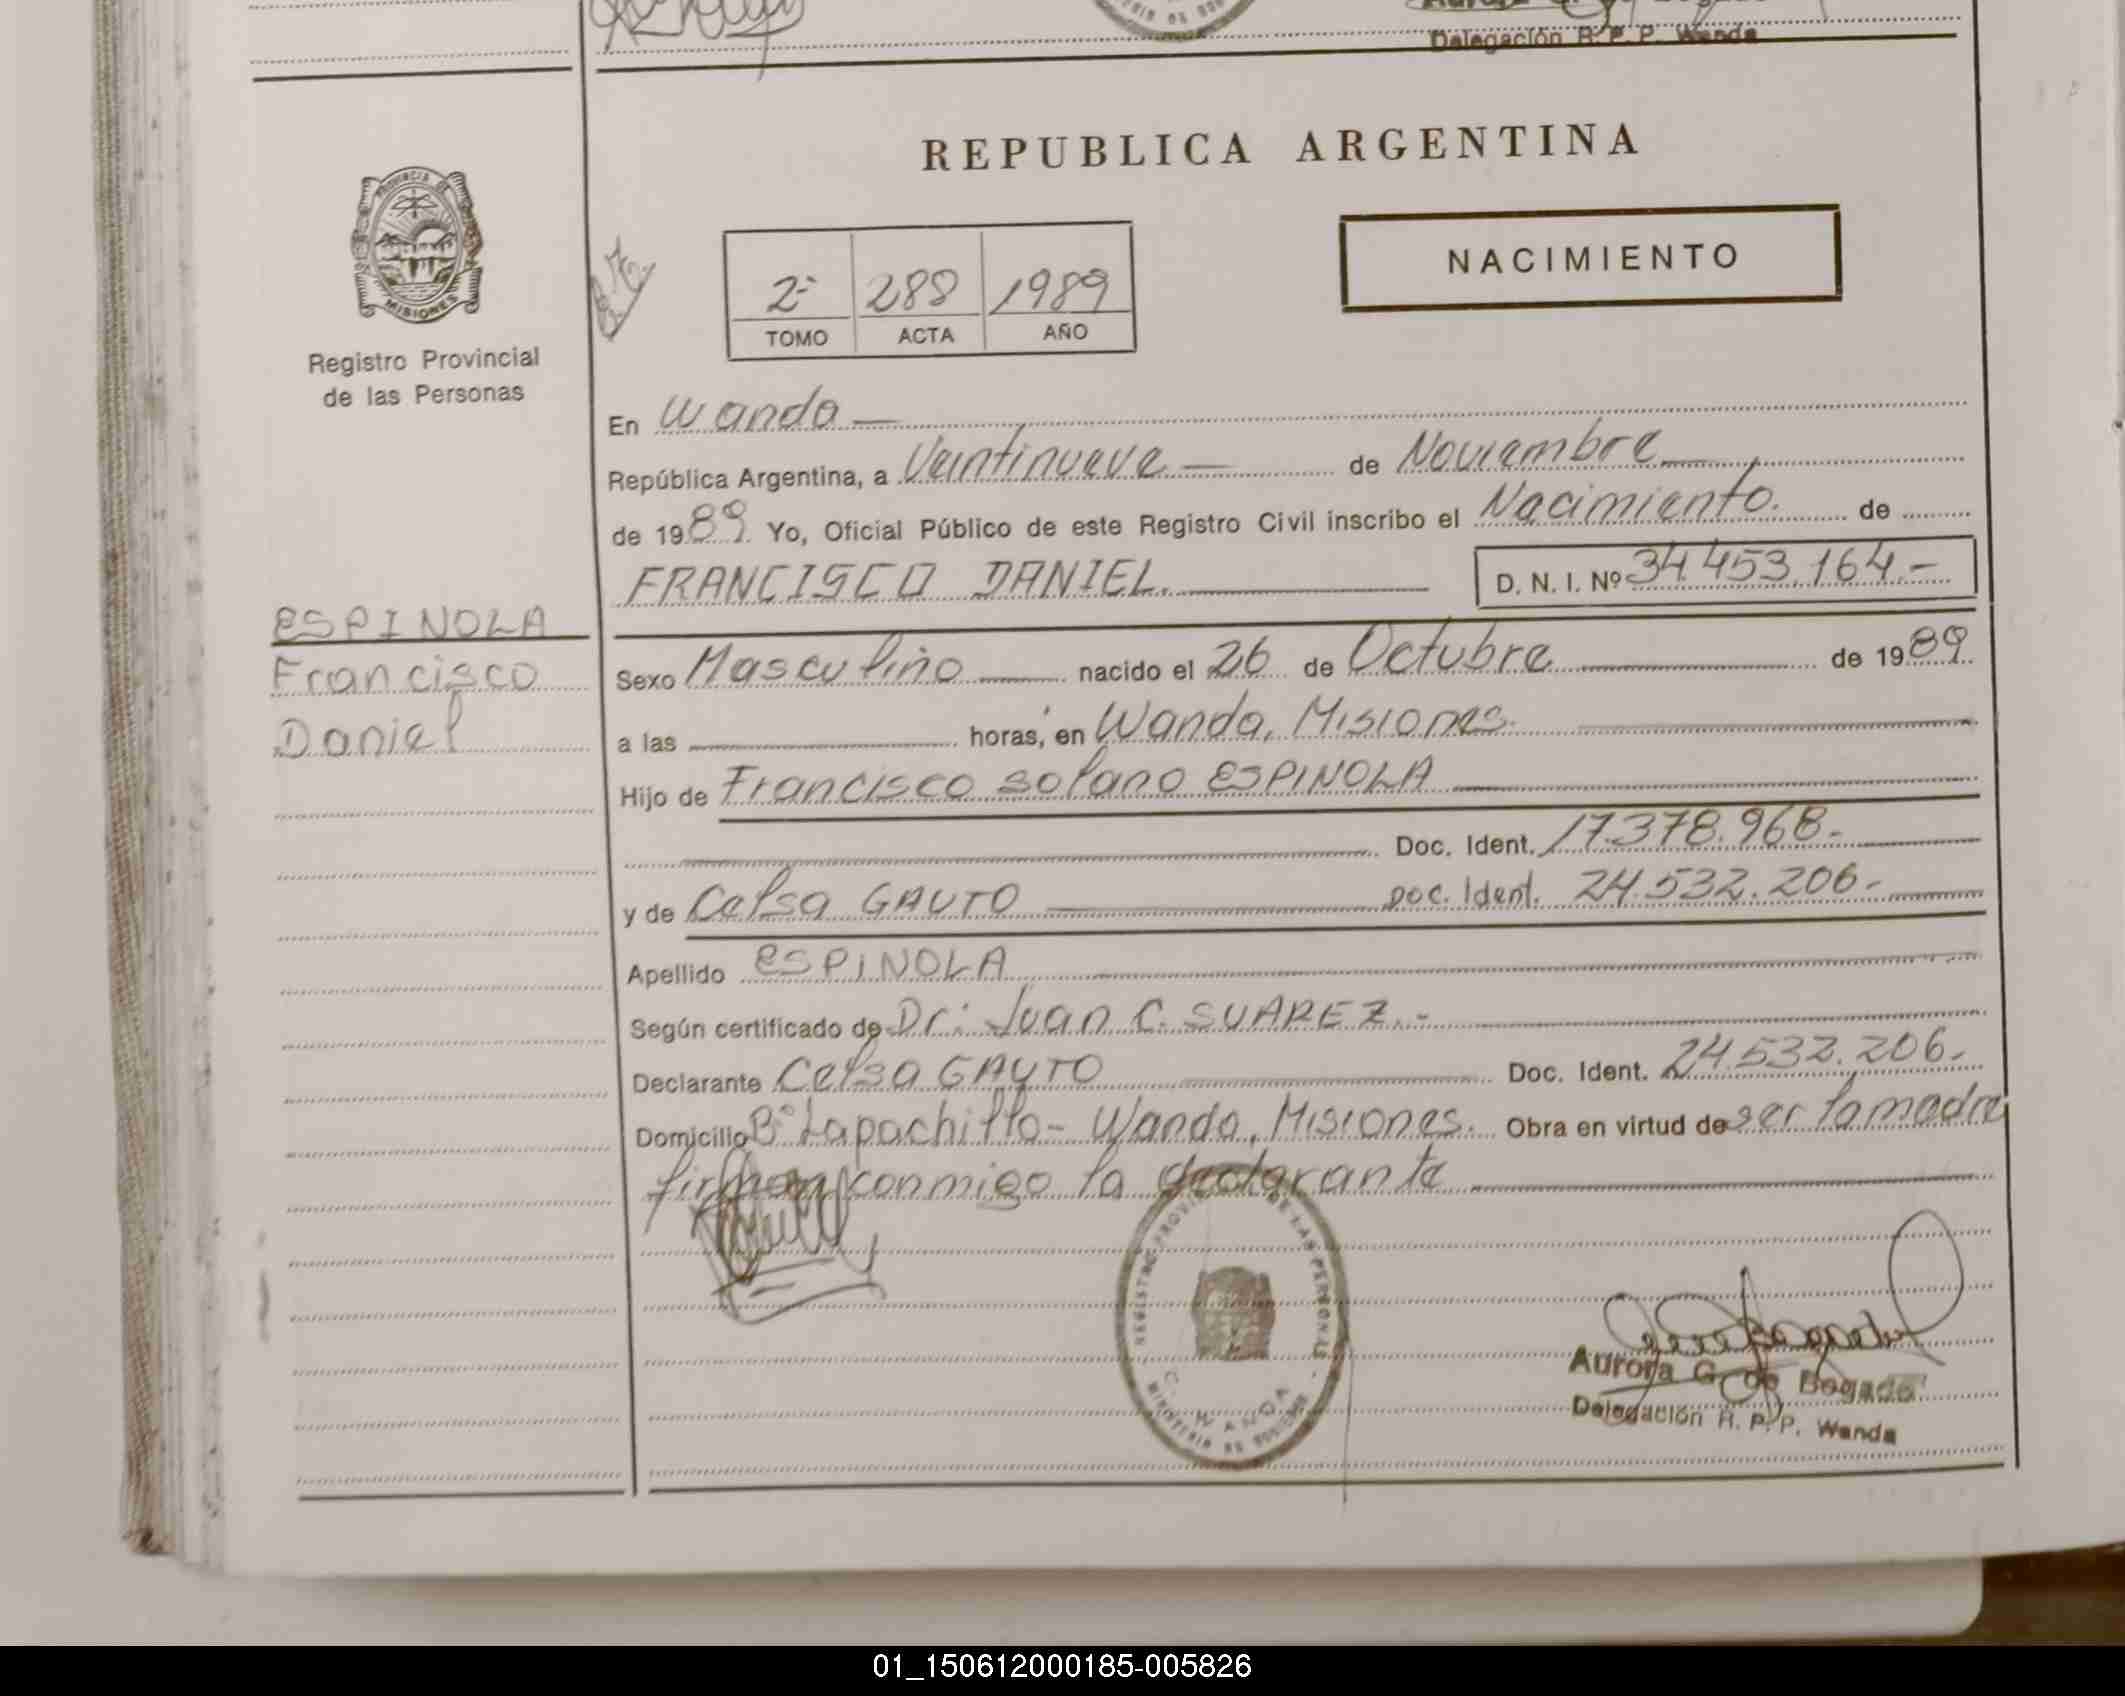 Delegación R. P. P. Wanda
PROVINCIA DE
MISIONES
Registro Provincial
de las Personas
REPUBLICA ARGENTINA
NACIMIENTO
2º 288 1989
TOMO ACTA AÑO
En Wanda
República Argentina, a Veintinueve de Noviembre
de 1989 Yo, Oficial Público de este Registro Civil inscribo el Nacimiento. de
FRANCISCO DANIEL. D. N. I. Nº 34.453.164.-
ESPINOLA
Francisco
Daniel
Sexo Masculino nacido el 26 de Octubre de 1989
a las horas, en Wanda, Misiones.
Hijo de Francisco solano ESPINOLA
Doc. Ident. 17.378.968.-
y de Celsa GAUTO Doc. Ident. 24.532.206.-
Apellido ESPINOLA
Según certificado de Dr: Juan C. SUAREZ.-
Declarante Celsa GAUTO Doc. Ident. 24.532.206.-
Domicilio Bº Lapachillo- Wanda, Misiones. Obra en virtud de ser la madre
firman conmigo la declarante
REGISTRO PROVINCIAL DE LAS PERSONAS
WANDA
MINISTERIO DE GOBIERNO
Aurora G. de Bogado
Delegación R. P. P. Wanda
01_150612000185-005826